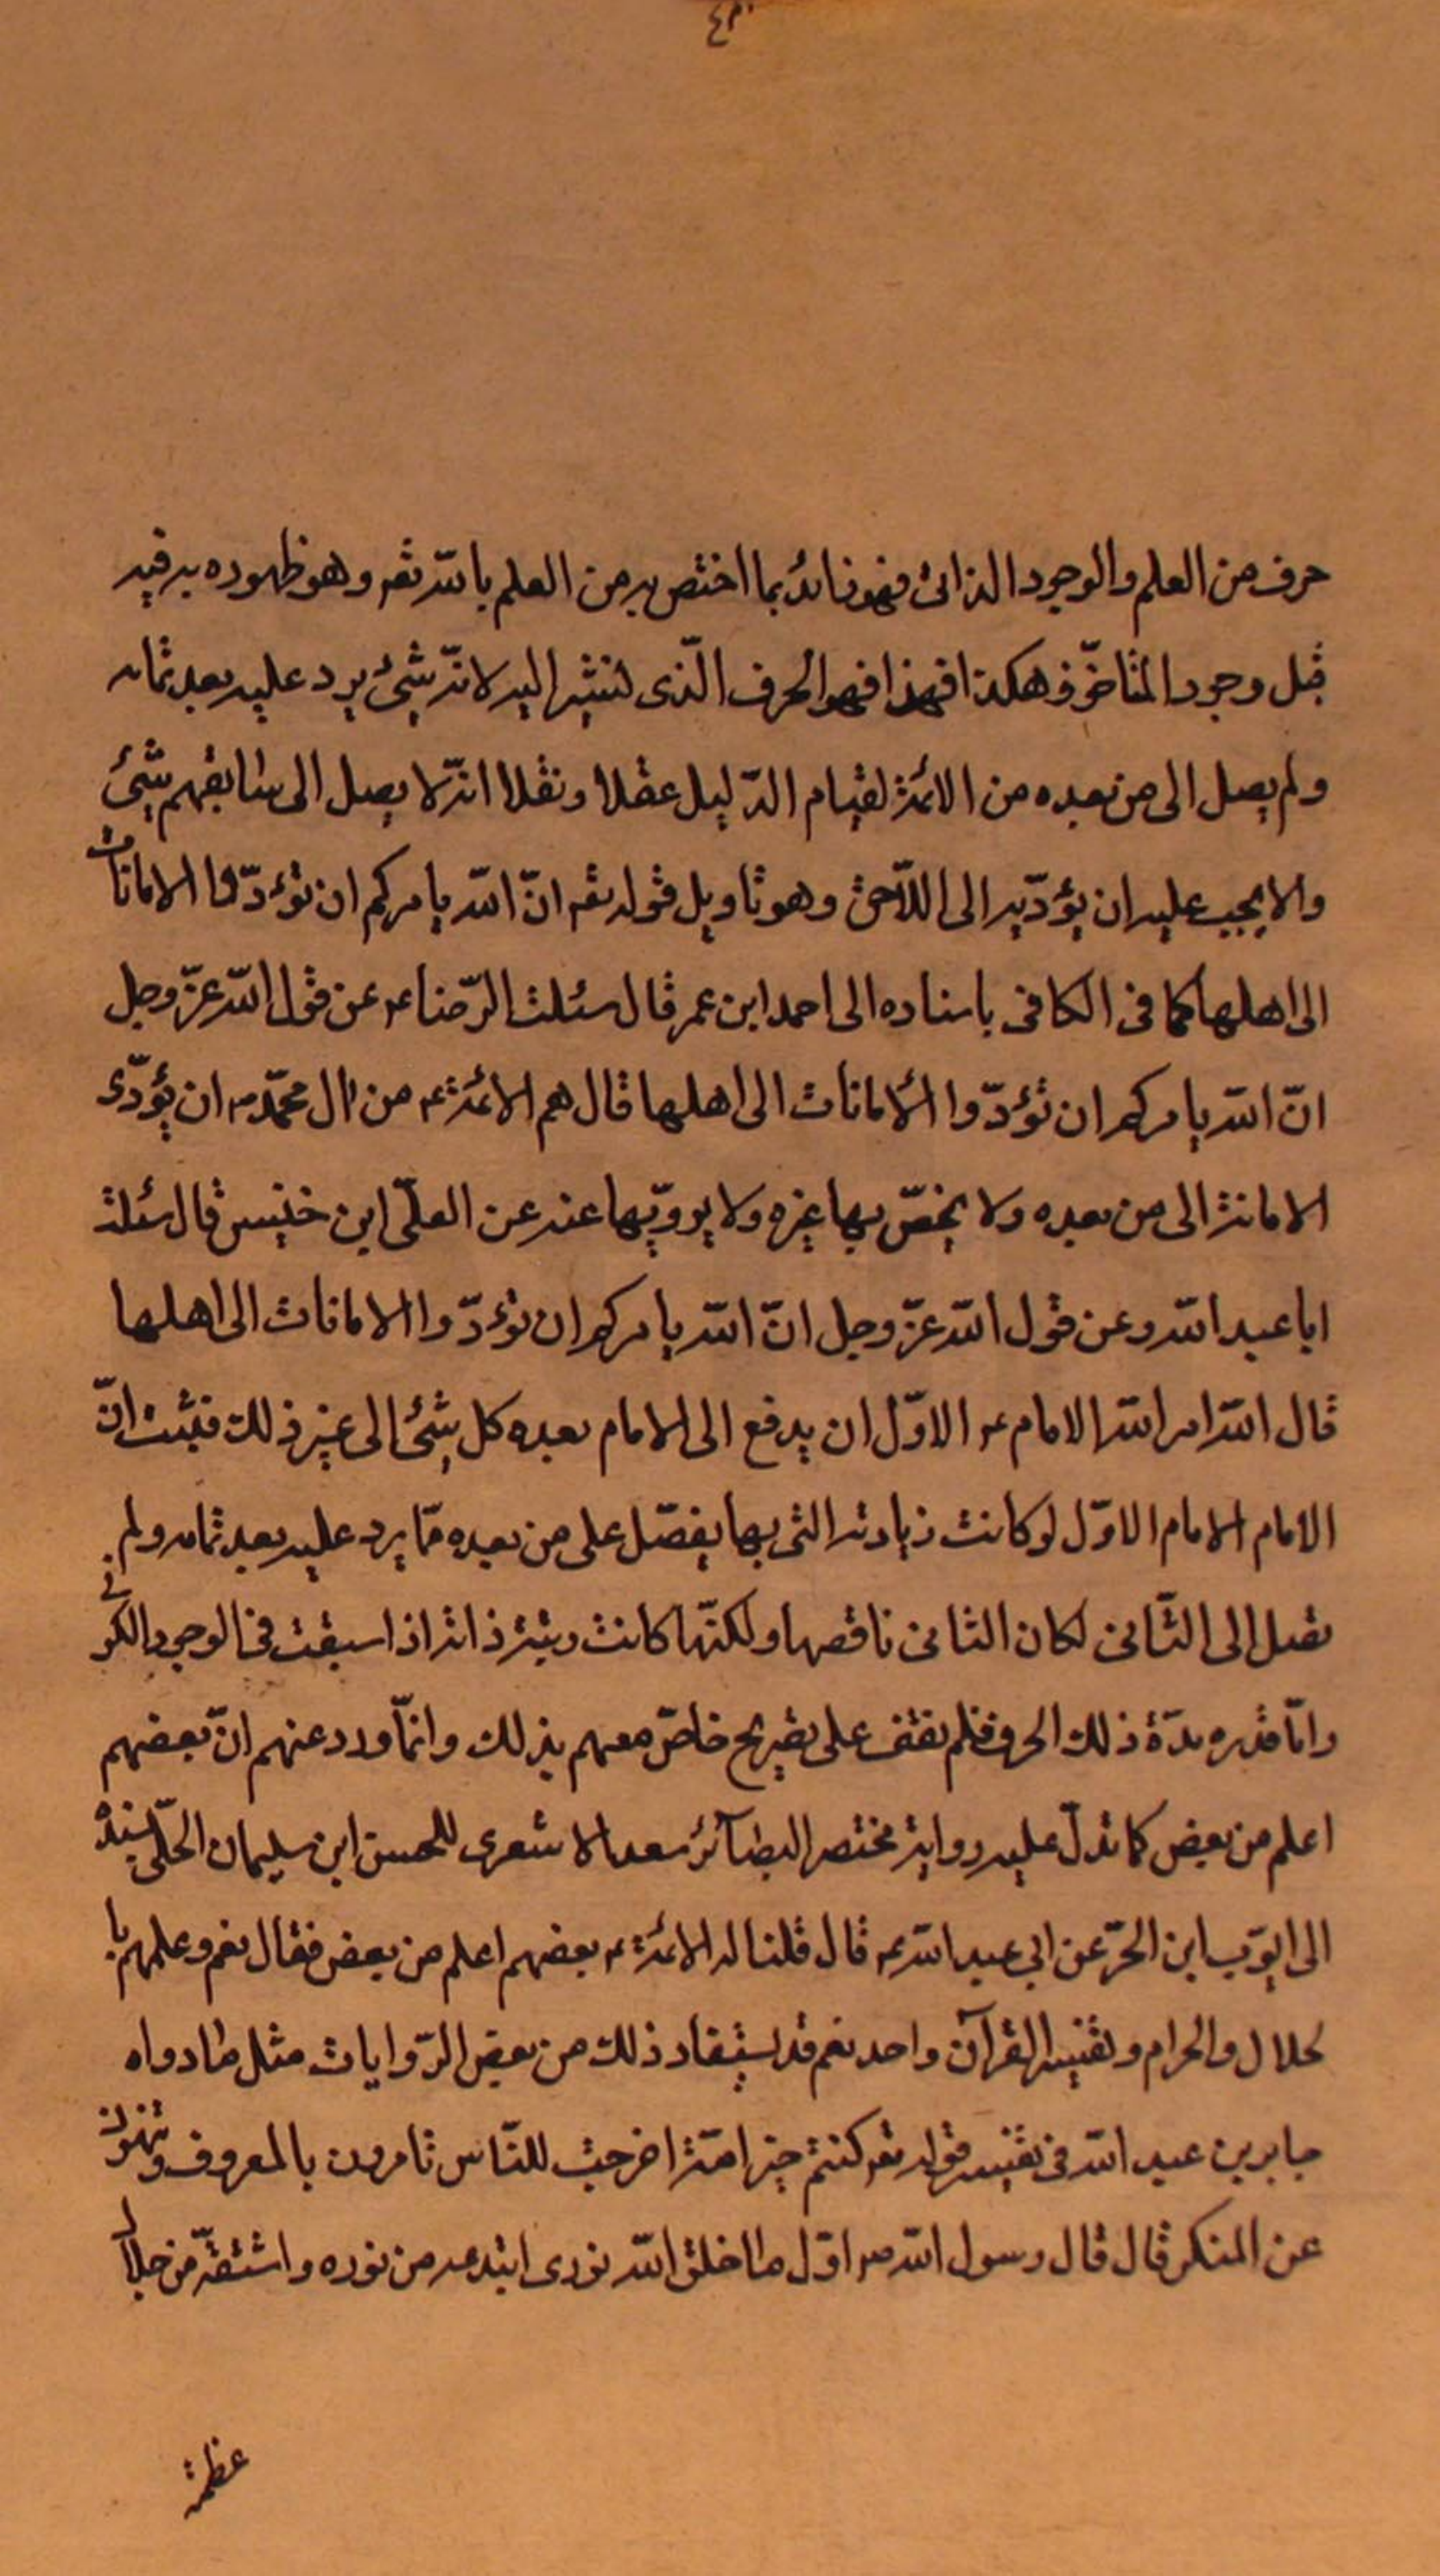 حرف من العلم والوجود الذاتى فهو زائد بما اختص به من العلم بالله تعه وهو ظهوره به فيه
قبل وجود المتاخّر وهكذا فهذا فهو الحرف الّذى نشير اليه لانّه شيئ يرد عليه بعد تمامه
ولم يصل الى من بعده من الائمة لقيام الدّليل عقلا ونقلا انّه لا يصل الى سابقهم شيئ
والا يجب عليه ان يؤدّيه الى اللّاحق وهو تاويل قوله تعه انّ الله يامركم ان تؤدّوا الامانات
الى اهلها كما فى الكافى باسناده الى احمد ابن عمر قال سئلت الرّضا عه عن قول الله عزّ وجل
انّ الله يامركم ان تؤدّوا الأمانات الى اهلها قال هم الائمّة عه من ال محمّد ص ان يؤدّى
الامانة الى من بعده ولا يخصّ بها غيره ولا يزويّها عنه عن المعلّى ابن خنيس قال سئلت
ابا عبد الله ع عن قول الله عزّ وجل انّ الله يامركم ان تؤدّوا الامانات الى اهلها
قال الله امر الله الامام عه الاوّل ان يدفع الى الامام بعده كل شيئ الى غير ذلك فثبت انّ
الامام الامام الاوّل لو كانت زيادته التى بها يفضّل على من بعده ممّا يرد عليه بعد تمامه ولم
تصل الى الثّانى لكان الثانى ناقصها ولكنّها كانت رتبة ذاته اذ اسبقت فى الوجود الكونى
وامّا قدره مدّة ذلك الحرف فلم نقف على تصريح خاصّ معهم بذلك وانمّا ورد عنهم انّ بعضهم
اعلم من بعض كما تدلّ عليه رواية مختصر البصآئر سعد الاشعرى للحسن ابن سليمان الحلّى بسنده
الى ايوّب ابن الحرّ عن ابى عبد الله عه قال قلنا له الائمّة عه بعضهم اعلم من بعض فقال نعم وعلمهم با
لحلال والحرام وتفسير القرآن واحد نعم قد يستفاد ذلك من بعض الرّوايات مثل ما رواه
جابر بن عبد الله فى تفسير قوله تعه كنتم خير امّة اخرجت للنّاس تامرون بالمعروف وتنهون
عن المنكر قال قال رسول الله ص اوّل ما اخلق الله نورى ابتدعه من نوره واشتقّه من جلال
عظمة